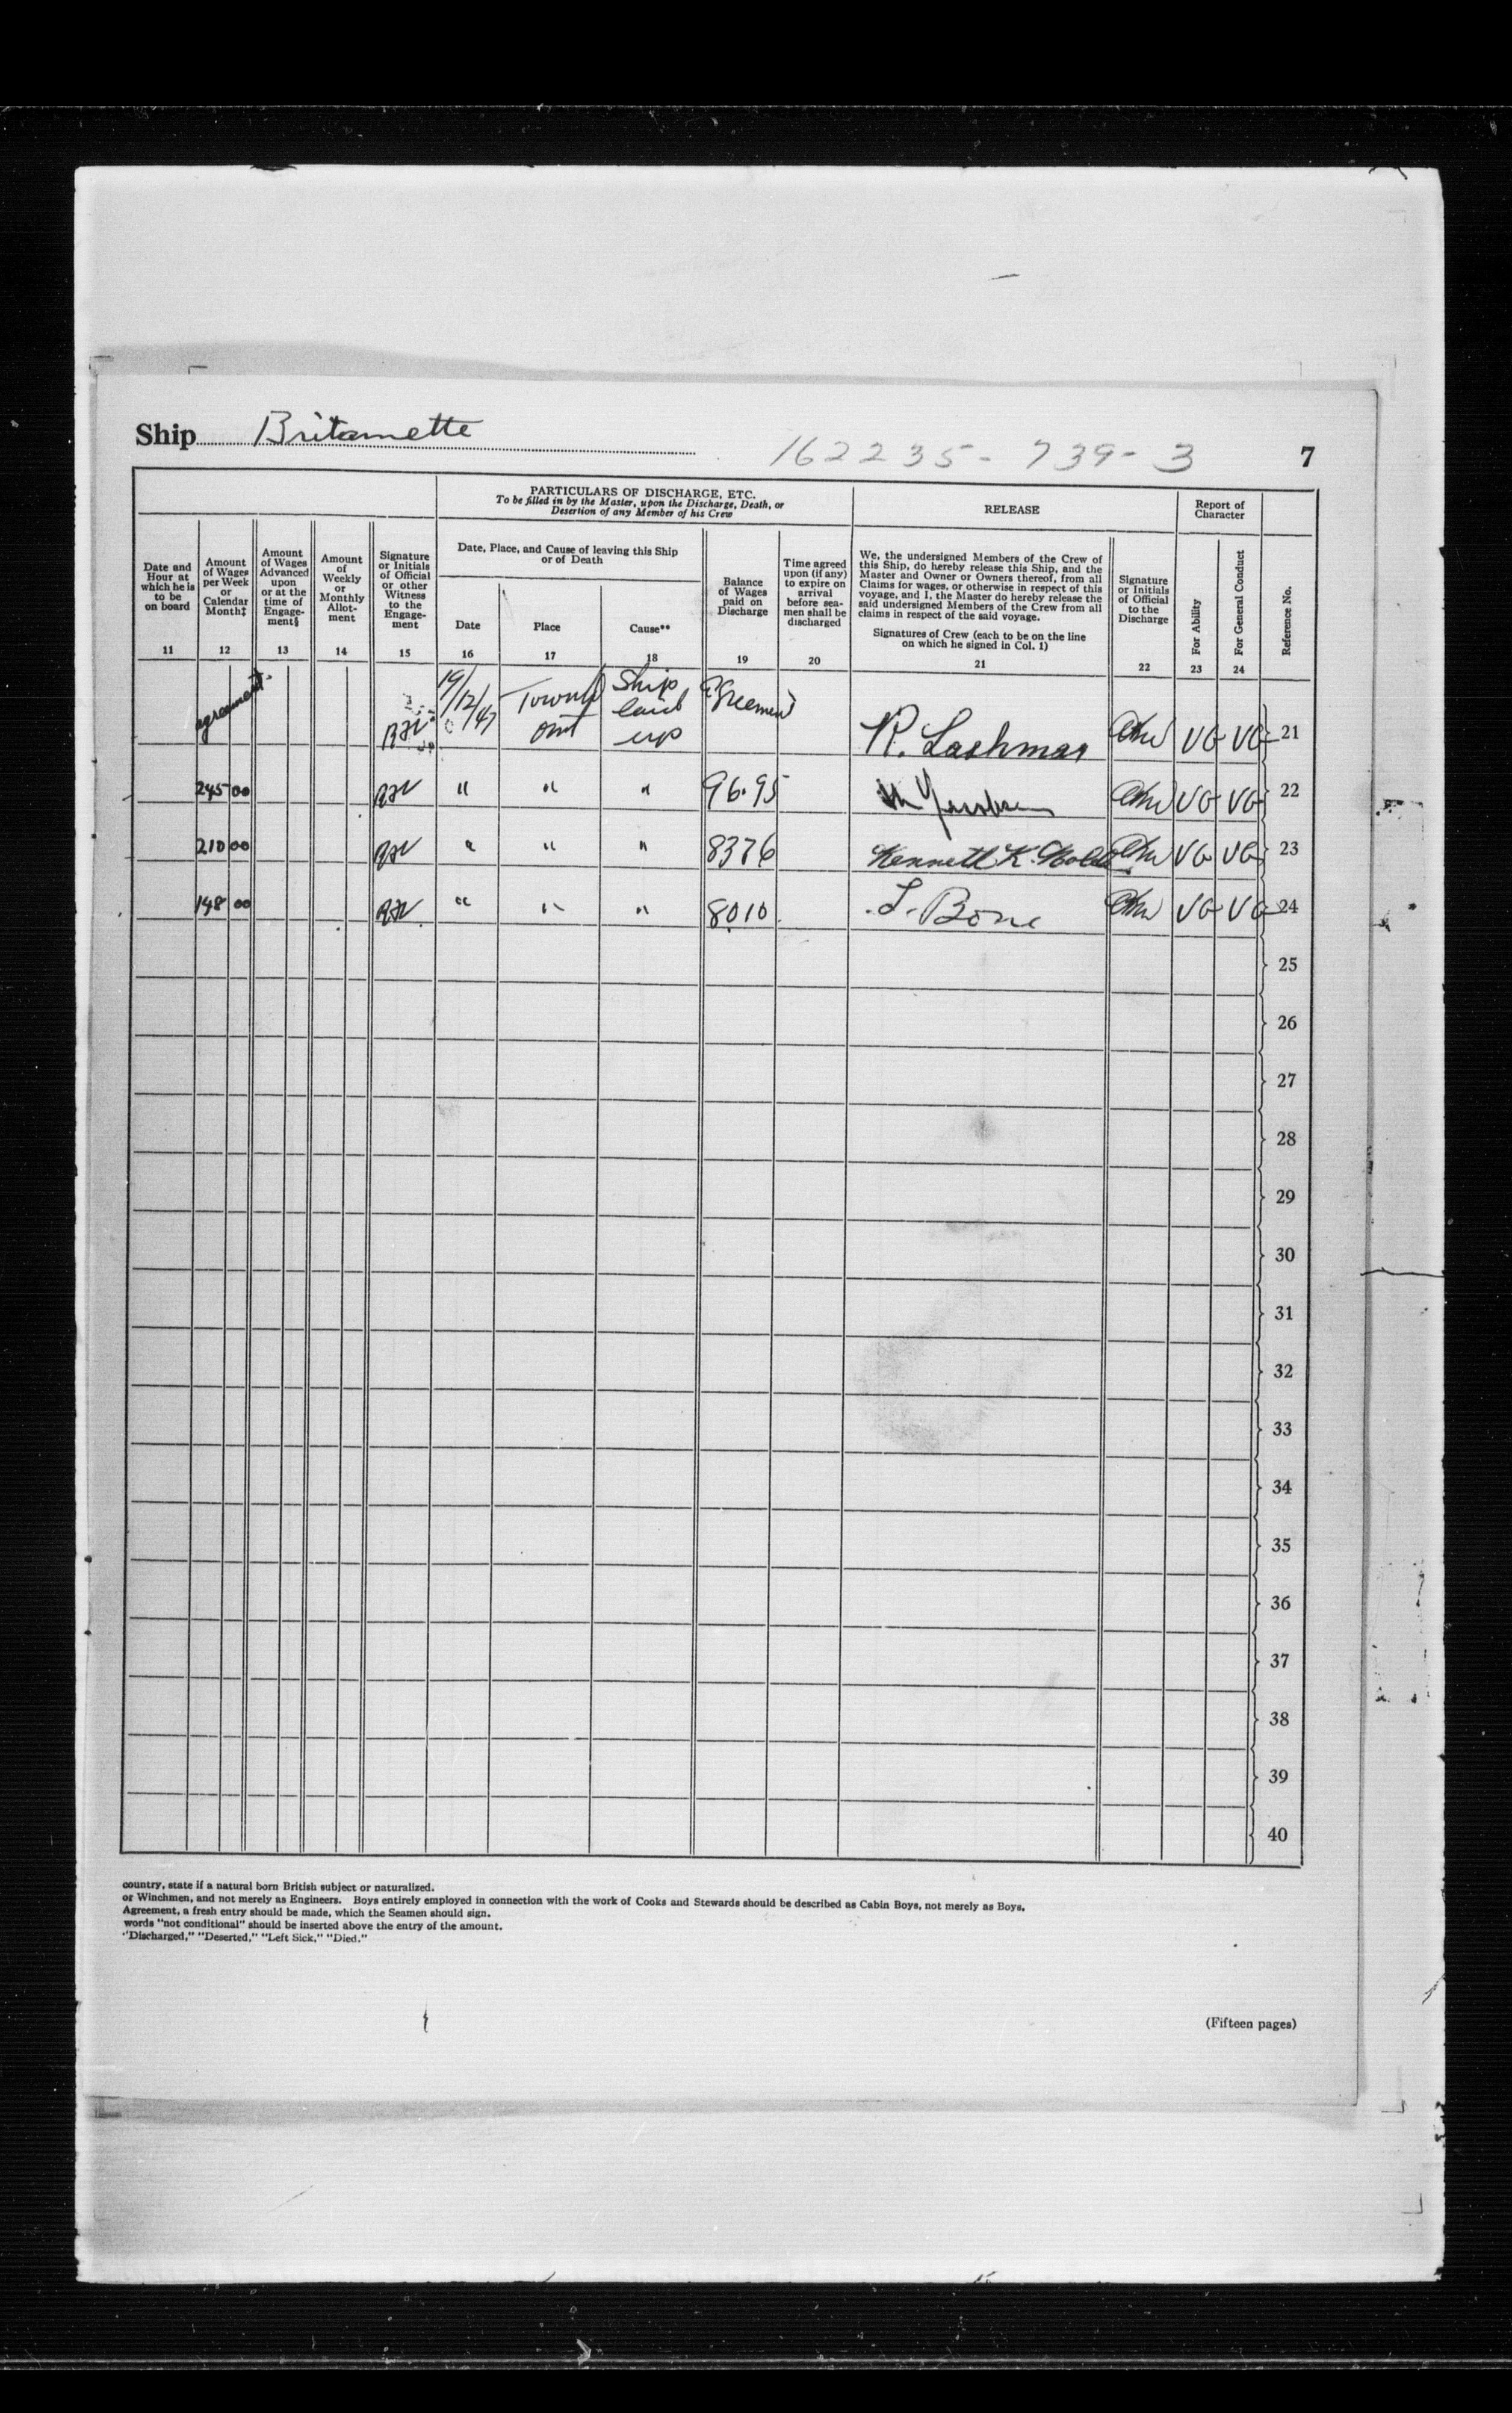 Ship Britamette
162235 - 739 - 3 7
PARTICULARS OF DISCHARGE, ETC.
To be filled in by the Master, upon the Discharge, Death, or
Desertion of any Member of his Crew
RELEASE
Report of
Character
Date and
Hour at
which he is
to be
on board
Amount
of Wages
per Week
or
Calendar
Month‡
Amount
of Wages
Advanced
upon
or at the
time of
Engage-
ment§
Amount
of
Weekly
or
Monthly
Allot-
ment
Signature
or Initials
of Official
or other
Witness
to the
Engage-
ment
Date, Place, and Cause of leaving this Ship
or of Death
Date
Place
Cause**
Balance
of Wages
paid on
Discharge
Time agreed
upon (if any)
to expire on
arrival
before sea-
men shall be
discharged
We, the undersigned Members of the Crew of
this Ship, do hereby release this Ship, and the
Master and Owner or Owners thereof, from all
Claims for wages, or otherwise in respect of this
voyage, and I, the Master do hereby release the
said undersigned Members of the Crew from all
claims in respect of the said voyage.
Signatures of Crew (each to be on the line
on which he signed in Col. 1)
Signature
or Initials
of Official
to the
Discharge
For Ability
For General Conduct
Reference No.
11 12 13 14 15 16 17 18 19 20 21 22 23 24
agreement 19/12/47 Ont Ship laid up Agreement R. Lashmar VG VG 21
245 00 " " " 96.95 VG VG 22
210 00 " " " 8376 Kenneth K. VG VG 23
198 00 " " " 8010 L. Bone VG VG 24
25
26
27
28
29
30
31
32
33
34
35
36
37
38
39
40
country, state if a natural born British subject or naturalized.
or Winchmen, and not merely as Engineers. Boys entirely employed in connection with the work of Cooks and Stewards should be described as Cabin Boys, not merely as Boys.
Agreement, a fresh entry should be made, which the Seamen should sign.
words "not conditional" should be inserted above the entry of the amount.
"Discharged," "Deserted," "Left Sick," "Died."
(Fifteen pages)